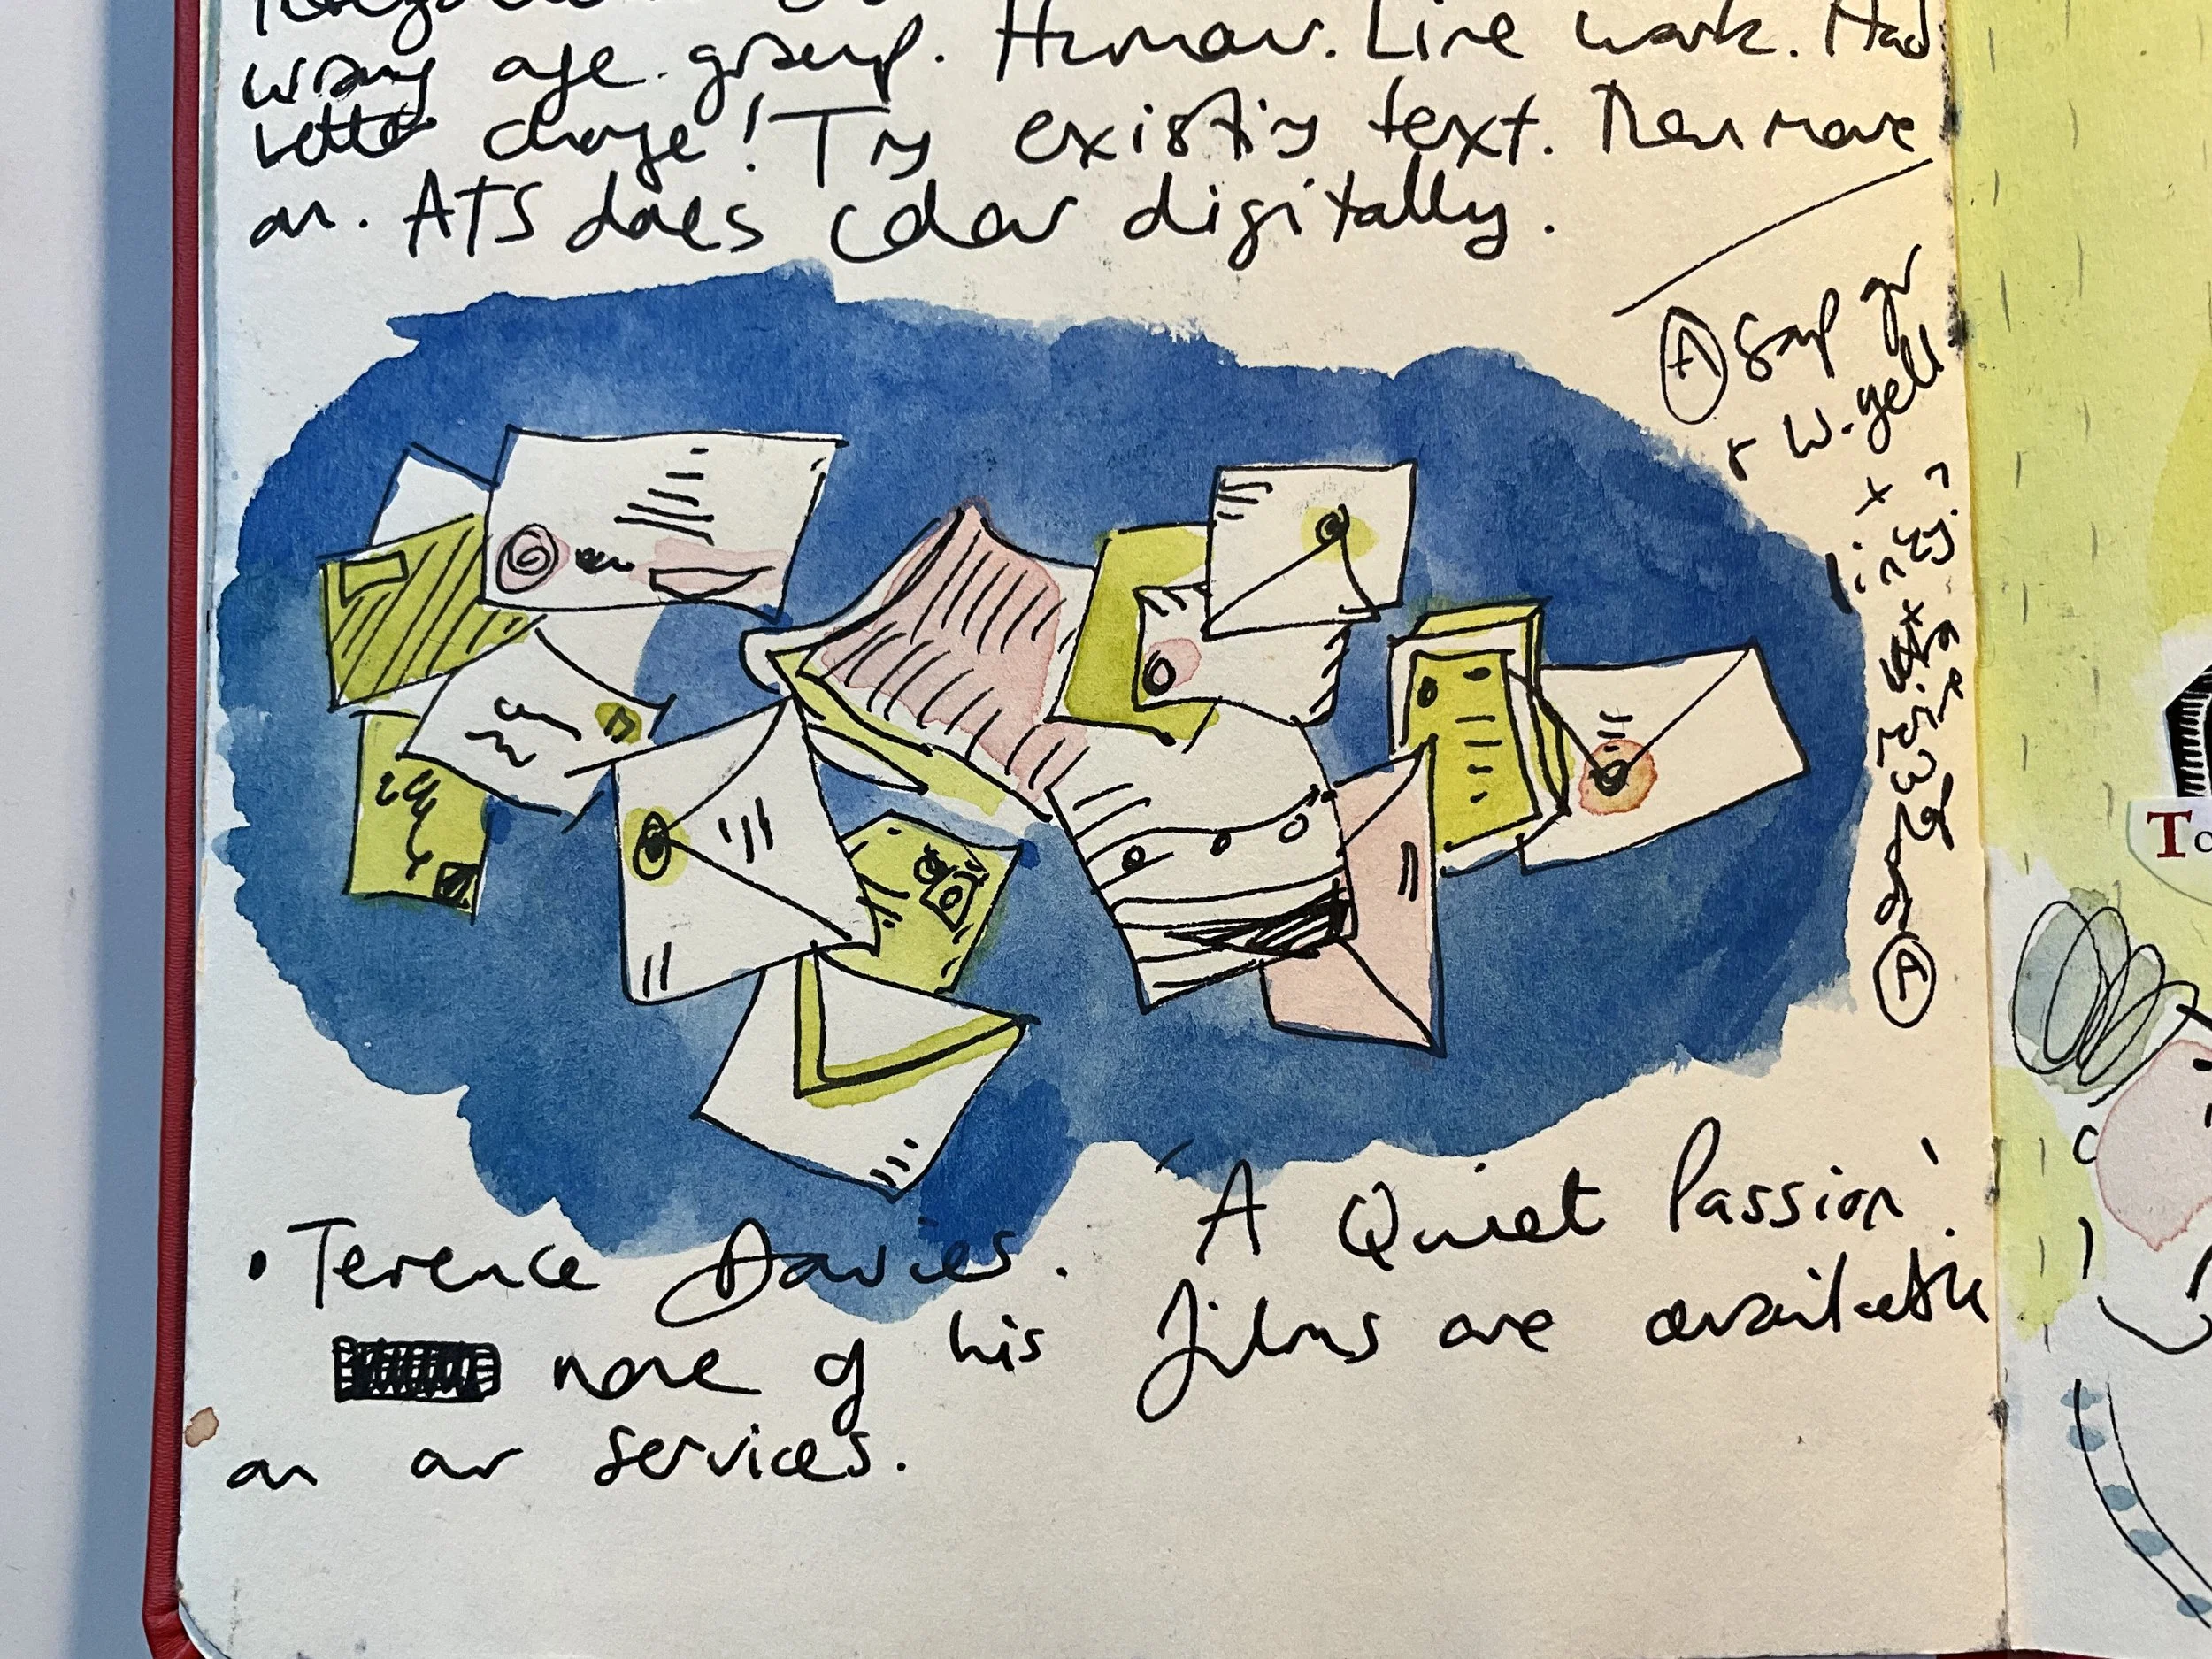 wrong age group. Humour. Line work. Had
better change! Try existing text. Then move
on. ATS does colour digitally.
A Sap gr
+ W. yell
x
inky?
A
• Terence Davies. 'A Quiet Passion'.
none of his films are available
on our services.
To